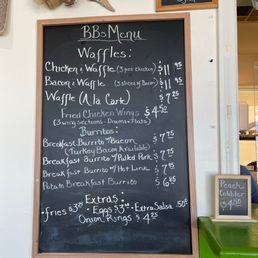 BBs Menu
Waffles:
Chicken & Waffle (3 pcs chicken) $11.95
Bacon & Waffle (3 slices of Bacon) $11.95
Waffle (A la Carte) $7.75
Fried Chicken Wings $4.50
(3 wing sections - Drums & Flats)
Burritos:
Breakfast Burrito w/Bacon $7.75
(Turkey Bacon Available)
Breakfast Burrito w/Pulled Pork $7.75
Breakfast Burrito w/Hot Link $7.75
Potato Breakfast Burrito $6.95
Extras:
•fries $3.00 •Eggs $3.00 •Extra Salsa .50¢
Onion Rings $4.25
Peach
Cobbler